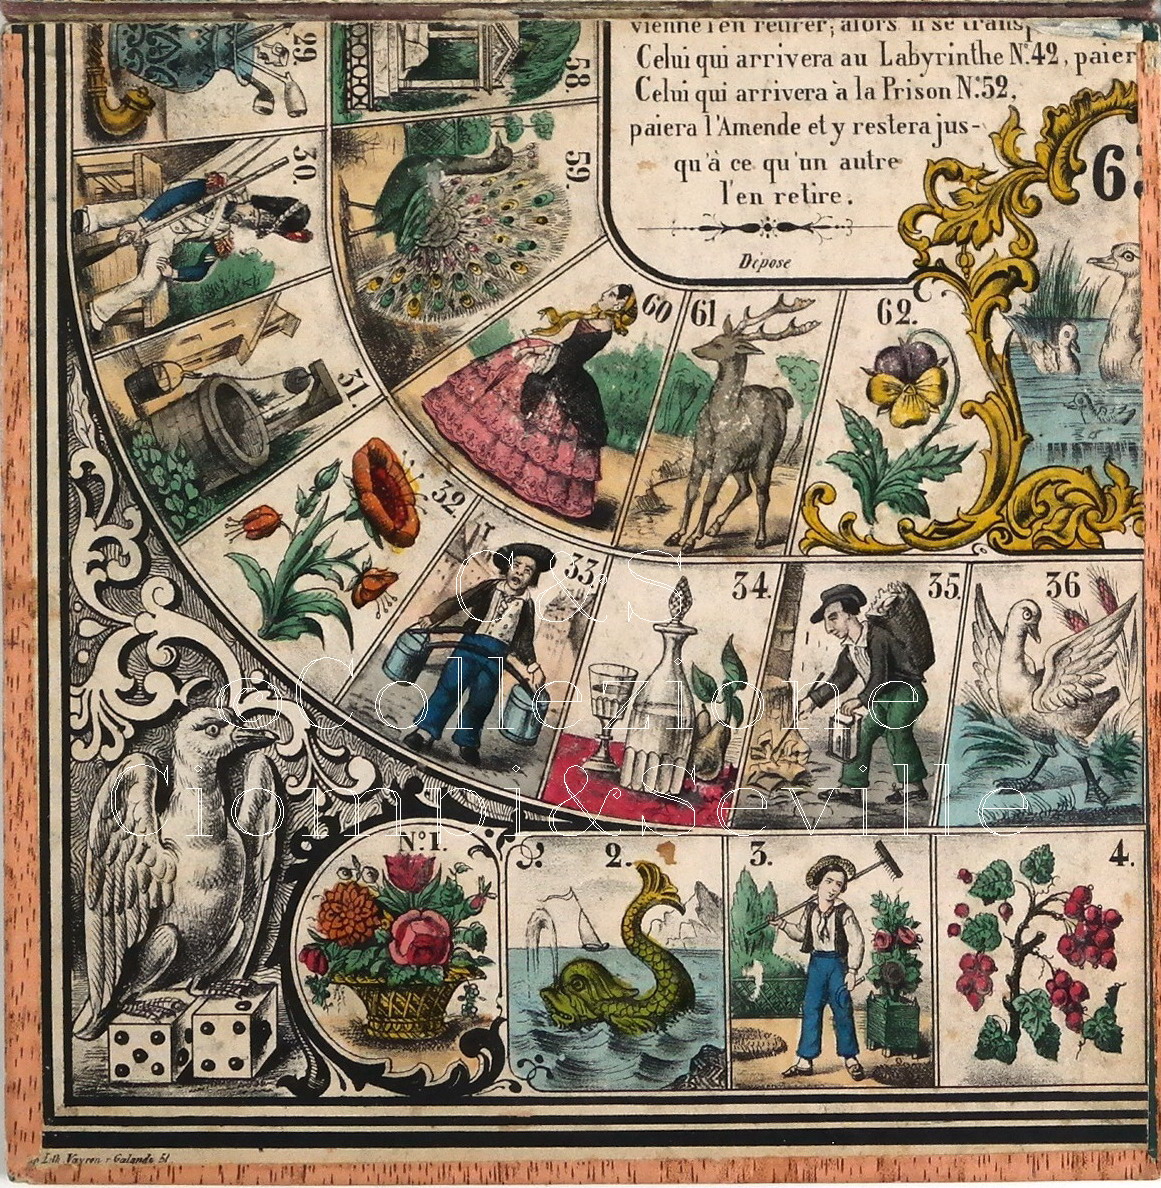 vienne l'en retirer; alors il se
Celui qui arrivera au Labyrinthe N°.42, paier
Celui qui arrivera à la Prison N°.52,
paiera l'Amende et y restera jus-
qu'à ce qu'un autre
l'en retire.
Déposé
29
58.
30.
59.
31.
60
61
62.
63
32.
33.
34.
35.
36
C&S
eCollezione
Ciompi&Seville
N°.1.
2.
3.
4.
Lith. Vayron r. Galande 51